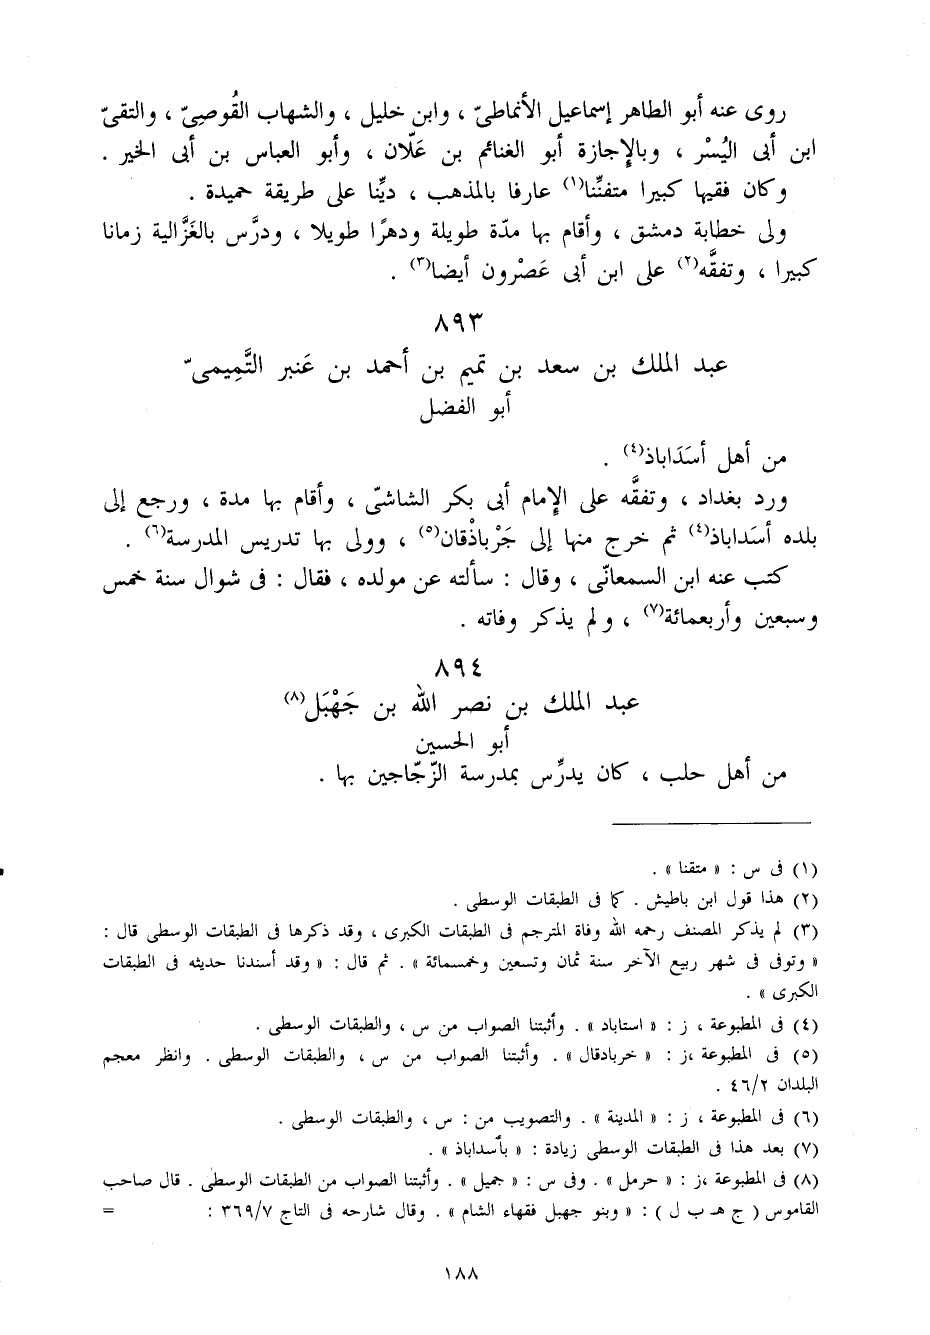 روى عنه أبو الطاهر إسماعيل الأنماطىّ ، وابن خليل ، والشهاب القُوصِىّ ، والتقىّ
ابن أبى اليُسْر ، وبالإجازة أبو الغنائم بن عَلّان ، وأبو العباس بن أبى الخير .
وكان فقيها كبيرا متفنِّنا(١) عارفا بالمذهب ، ديِّنا على طريقة حميدة .
ولى خطابة دمشق ، وأقام بها مدّة طويلة ودهرًا طويلا ، ودرَّس بالغَزَّالية زمانا
كبيرا ، وتفقَّه(٢) على ابن أبى عَصْرون أيضا(٣) .
٨٩٣
عبد الملك بن سعد بن تميم بن أحمد بن عَنبر التَّمِيمىّ
أبو الفضل
من أهل أسَدَاباذ(٤) .
ورد بغداد ، وتفقَّه على الإمام أبى بكر الشاشىّ ، وأقام بها مدة ، ورجع إلى
بلده أسَداباذ(٤) ثم خرج منها إلى جَرْباذْقان(٥) ، وولى بها تدريس المدرسة(٦) .
كتب عنه ابن السمعانّى ، وقال : سألته عن مولده ، فقال : فى شوال سنة خمس
وسبعين وأربعمائة(٧) ، ولم يذكر وفاته .
٨٩٤
عبد الملك بن نصر الله بن جَهْبَل(٨)
أبو الحسين
من أهل حلب ، كان يدرِّس بمدرسة الزّجّاجين بها .
(١) فى س : « متقنا » .
(٢) هذا قول ابن باطيش . كما فى الطبقات الوسطى .
(٣) لم يذكر المصنف رحمه الله وفاة المترجم فى الطبقات الكبرى ، وقد ذكرها فى الطبقات الوسطى قال :
« وتوفى فى شهر ربيع الآخر سنة ثمان وتسعين وخمسمائة » . ثم قال : « وقد أسندنا حديثه فى الطبقات
الكبرى » .
(٤) فى المطبوعة ، ز : « استاباد » . وأثبتنا الصواب من س ، والطبقات الوسطى .
(٥) فى المطبوعة ،ز : « خربادقال » . وأثبتنا الصواب من س ، والطبقات الوسطى . وانظر معجم
البلدان ٤٦/٢ .
(٦) فى المطبوعة ، ز : « المدينة » . والتصويب من : س ، والطبقات الوسطى .
(٧) بعد هذا فى الطبقات الوسطى زيادة : « بأسداباذ » .
(٨) فى المطبوعة ،ز : « حرمل » . وفى س : « جميل » . وأثبتنا الصواب من الطبقات الوسطى . قال صاحب
القاموس ( ج هـ ب ل ) : « وبنو جهبل فقهاء الشام » . وقال شارحه فى التاج ٣٦٩/٧ : =
١٨٨